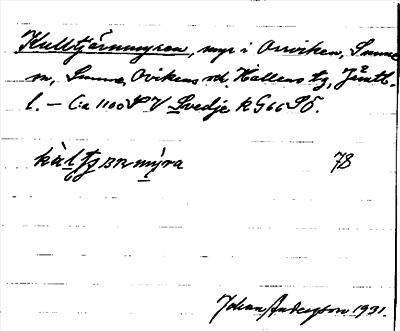 Kulltjärnmyran, myr i Orviken, Sunne
sn, Sunne, Ovikens od, Hallens tg, Jämtl.
l. – C:a 1100 S V Svedje k G66 S8.
78
Johan Anderson 1931.